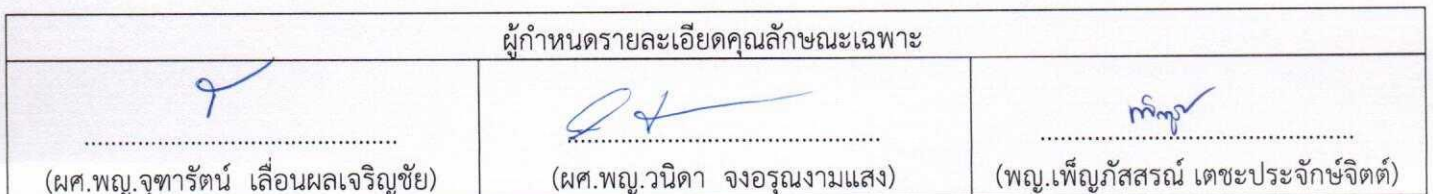 ผู้กำหนดรายละเอียดคุณลักษณะเฉพาะ
(ผศ.พญ.จุฑารัตน์ เลื่อนผลเจริญชัย)
(ผศ.พญ.วนิดา จงอรุณงามแสง)
(พญ.เพ็ญภัสสรณ์ เตชะประจักษ์จิตต์)